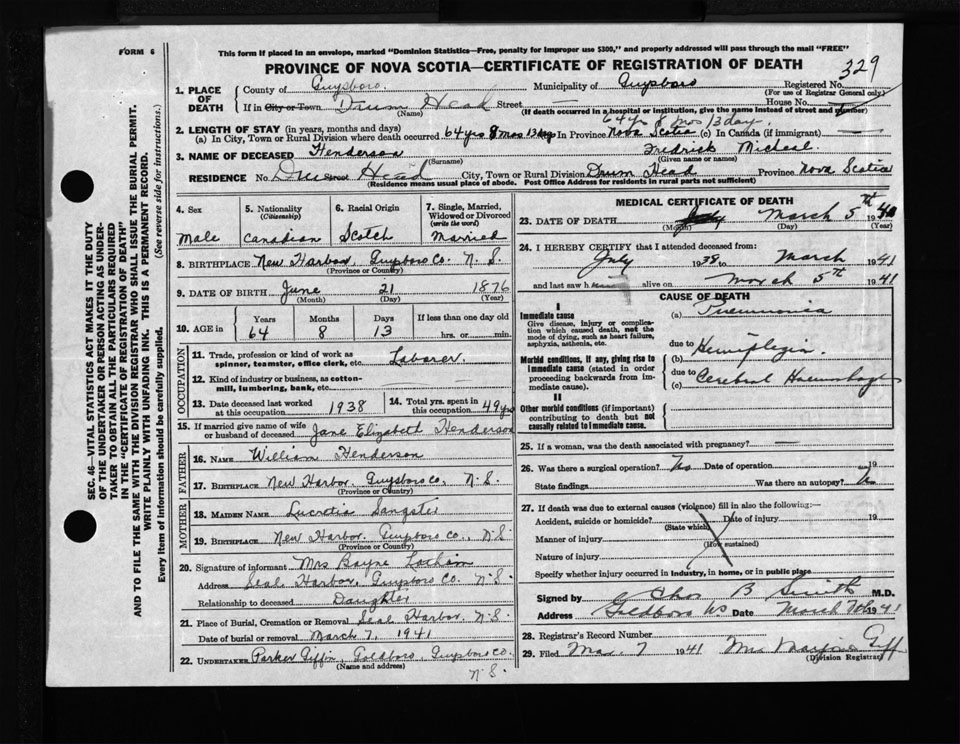 FORM 6
This form if placed in an envelope, marked "Dominion Statistics—Free, penalty for improper use $300," and properly addressed will pass through the mail "FREE"
PROVINCE OF NOVA SCOTIA—CERTIFICATE OF REGISTRATION OF DEATH
329
1. PLACE OF DEATH
County of Guysboro. Municipality of Guysboro Registered No.
(For use of Registrar General only)
If in City or Town Drum Head Street — House No.
(Name) (If death occurred in a hospital or institution, give the name instead of street and number)
64 yrs 8 mos 13 day.
2. LENGTH OF STAY (in years, months and days)
(a) In City, Town or Rural Division where death occurred 64 yrs 8 mos 13 dys In Province Nova Scotia (c) In Canada (if immigrant) —
3. NAME OF DECEASED Henderson Fredrick Micheal.
(Surname) (Given name or names)
RESIDENCE No. Street City, Town or Rural Division Drum Head Province Nova Scotia
(Residence means usual place of abode. Post Office Address for residents in rural parts not sufficient)
4. Sex
Male
5. Nationality
(Citizenship)
Canadian
6. Racial Origin
Scotch
7. Single, Married, Widowed or Divorced
(write the word)
Married
8. BIRTHPLACE New Harbor, Guysboro Co. N. S.
(Province or Country)
9. DATE OF BIRTH June 21 1876
(Month) (Day) (Year)
10. AGE in
Years Months Days If less than one day old
64 8 13 hrs. or min.
OCCUPATION
11. Trade, profession or kind of work as spinner, teamster, office clerk, etc. Laborer.
12. Kind of industry or business, as cotton-mill, lumbering, bank, etc. —
13. Date deceased last worked at this occupation 1938
14. Total yrs. spent in this occupation 49 yrs
15. If married give name of wife or husband of deceased Jane Elizabeth Henderson
FATHER
16. NAME William Henderson
17. BIRTHPLACE New Harbor, Guysboro Co. N.S.
(Province or Country)
MOTHER
18. MAIDEN NAME Lucretia Sangster
19. BIRTHPLACE New Harbor, Guysboro Co., N.S
(Province or Country)
20. Signature of informant Mrs Bayne
Address Seal Harbor, Guysboro Co. N.S.
Relationship to deceased Daughter
21. Place of Burial, Cremation or Removal Seal Harbor, N.S.
Date of burial or removal March 7, 1941
22. UNDERTAKER Parker Giffin, Goldboro, Guysboro Co.
(Name and address)
N.S.
MEDICAL CERTIFICATE OF DEATH
23. DATE OF DEATH March 5th 19
(Month) (Day) (Year)
24. I HEREBY CERTIFY that I attended deceased from:
July 1938 to March 1941
and last saw h alive on March 5th 1941
CAUSE OF DEATH
I
Immediate cause
Give disease, injury or complication which caused death, not the mode of dying, such as heart failure, asphyxia, asthenia, etc.
(a) Pneumonia
due to
Morbid conditions, if any, giving rise to immediate cause (stated in order proceeding backwards from immediate cause).
(b) Hemiplegia.
due to
(c) Cerebral Haemorhage
II
Other morbid conditions (if important) contributing to death but not causally related to immediate cause.
25. If a woman, was the death associated with pregnancy? —
26. Was there a surgical operation? No Date of operation 19
State findings Was there an autopsy? No
27. If death was due to external causes (violence) fill in also the following:—
Accident, suicide or homicide? Date of injury 19
(State which)
Manner of injury
(How sustained)
Nature of injury
Specify whether injury occurred in industry, in home, or in public place
Signed by Chas B Smith M.D.
Address Goldboro NS Date March 7th 1941
28. Registrar's Record Number
29. Filed Mar. 7 1941 Mrs Giff
(Division Registrar)
SEC. 46—VITAL STATISTICS ACT MAKES IT THE DUTY
OF THE UNDERTAKER OR PERSON ACTING AS UNDER-
TAKER TO OBTAIN ALL THE PARTICULARS REQUIRED
IN THE "CERTIFICATE OF REGISTRATION OF DEATH"
AND TO FILE THE SAME WITH THE DIVISION REGISTRAR WHO SHALL ISSUE THE BURIAL PERMIT.
WRITE PLAINLY WITH UNFADING INK. THIS IS A PERMANENT RECORD.
Every item of information should be carefully supplied. (See reverse side for instructions.)